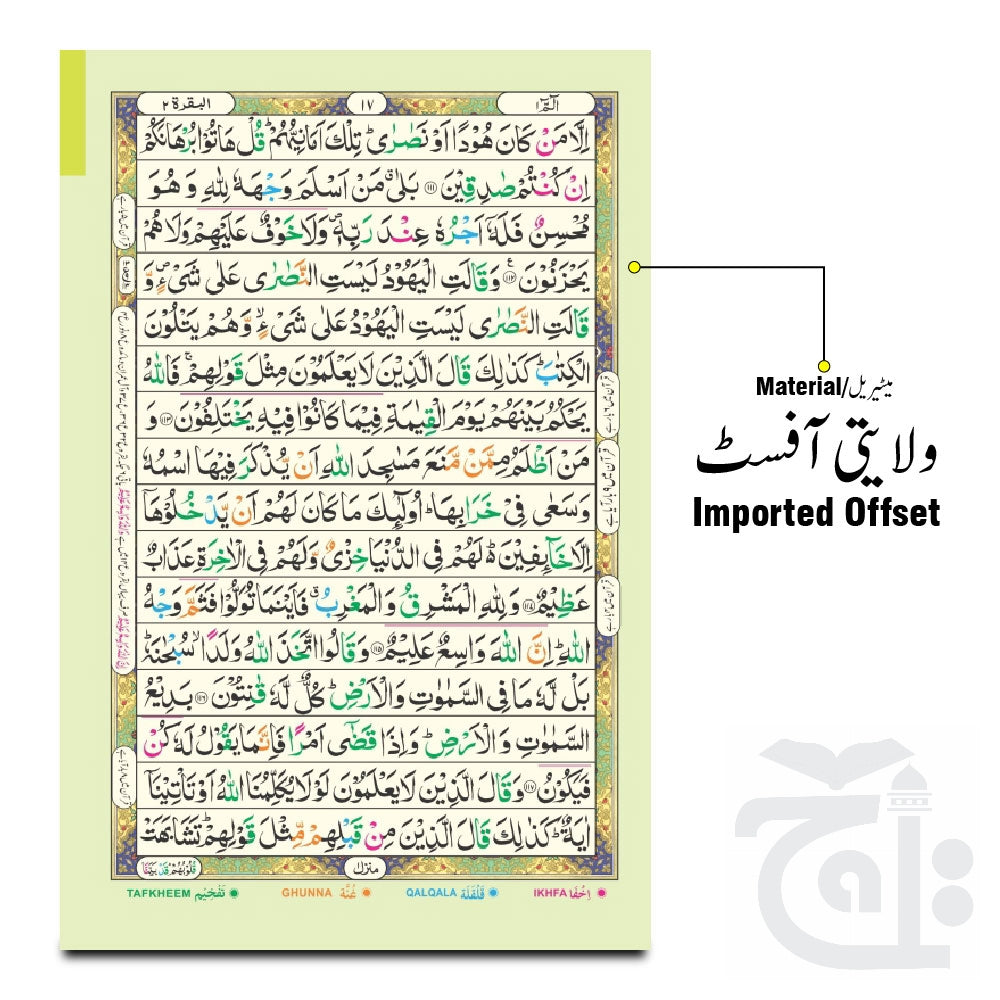 البقرة ٢
١٧
الٓمّٓ ١
اِلَّا مَنْ كَانَ هُوْدًا اَوْ نَصٰرٰى ؕ تِلْكَ اَمَانِيُّهُمْ ؕ قُلْ هَاتُوْا بُرْهَانَكُمْ
اِنْ كُنْتُمْ صٰدِقِيْنَ ﴿۱۱۱﴾ بَلٰى ۗ مَنْ اَسْلَمَ وَجْهَهٗ لِلّٰهِ وَ هُوَ
مُحْسِنٌ فَلَهٗۤ اَجْرُهٗ عِنْدَ رَبِّهٖ ۪ وَلَا خَوْفٌ عَلَيْهِمْ وَلَا هُمْ
يَحْزَنُوْنَ ﴿۱۱۲﴾ وَقَالَتِ الْيَهُوْدُ لَيْسَتِ النَّصٰرٰى عَلٰى شَىْءٍ ۪ وَّ
قَالَتِ النَّصٰرٰى لَيْسَتِ الْيَهُوْدُ عَلٰى شَىْءٍ ۙ وَّهُمْ يَتْلُوْنَ
الْكِتٰبَ ؕ كَذٰلِكَ قَالَ الَّذِيْنَ لَا يَعْلَمُوْنَ مِثْلَ قَوْلِهِمْ ۚ فَاللّٰهُ
يَحْكُمُ بَيْنَهُمْ يَوْمَ الْقِيٰمَةِ فِيْمَا كَانُوْا فِيْهِ يَخْتَلِفُوْنَ ﴿۱۱۳﴾ وَ
مَنْ اَظْلَمُ مِمَّنْ مَّنَعَ مَسٰجِدَ اللّٰهِ اَنْ يُّذْكَرَ فِيْهَا اسْمُهٗ
وَسَعٰى فِىْ خَرَابِهَا ؕ اُولٰٓئِكَ مَا كَانَ لَهُمْ اَنْ يَّدْخُلُوْهَاۤ
اِلَّا خَآئِفِيْنَ ۬ؕ لَهُمْ فِى الدُّنْيَا خِزْىٌ وَّلَهُمْ فِى الْاٰخِرَةِ عَذَابٌ
عَظِيْمٌ ﴿۱۱۴﴾ وَلِلّٰهِ الْمَشْرِقُ وَالْمَغْرِبُ ۗ فَاَيْنَمَا تُوَلُّوْا فَثَمَّ وَجْهُ
اللّٰهِ ؕ اِنَّ اللّٰهَ وَاسِعٌ عَلِيْمٌ ﴿۱۱۵﴾ وَقَالُوا اتَّخَذَ اللّٰهُ وَلَدًا ۙ سُبْحٰنَهٗ ؕ
بَلْ لَّهٗ مَا فِى السَّمٰوٰتِ وَالْاَرْضِ ؕ كُلٌّ لَّهٗ قٰنِتُوْنَ ﴿۱۱۶﴾ بَدِيْعُ
السَّمٰوٰتِ وَالْاَرْضِ ؕ وَاِذَا قَضٰٓى اَمْرًا فَاِنَّمَا يَقُوْلُ لَهٗ كُنْ
فَيَكُوْنُ ﴿۱۱۷﴾ وَقَالَ الَّذِيْنَ لَا يَعْلَمُوْنَ لَوْلَا يُكَلِّمُنَا اللّٰهُ اَوْ تَاْتِيْنَاۤ
اٰيَةٌ ؕ كَذٰلِكَ قَالَ الَّذِيْنَ مِنْ قَبْلِهِمْ مِّثْلَ قَوْلِهِمْ ؕ تَشَابَهَتْ
منزل
TAFKHEEM تَفْخِيْم
GHUNNA غُنَّه
QALQALA قَلْقَلَة
IKHFA اِخْفَا
Material/میٹیریل
ولایتی آفسٹ
Imported Offset